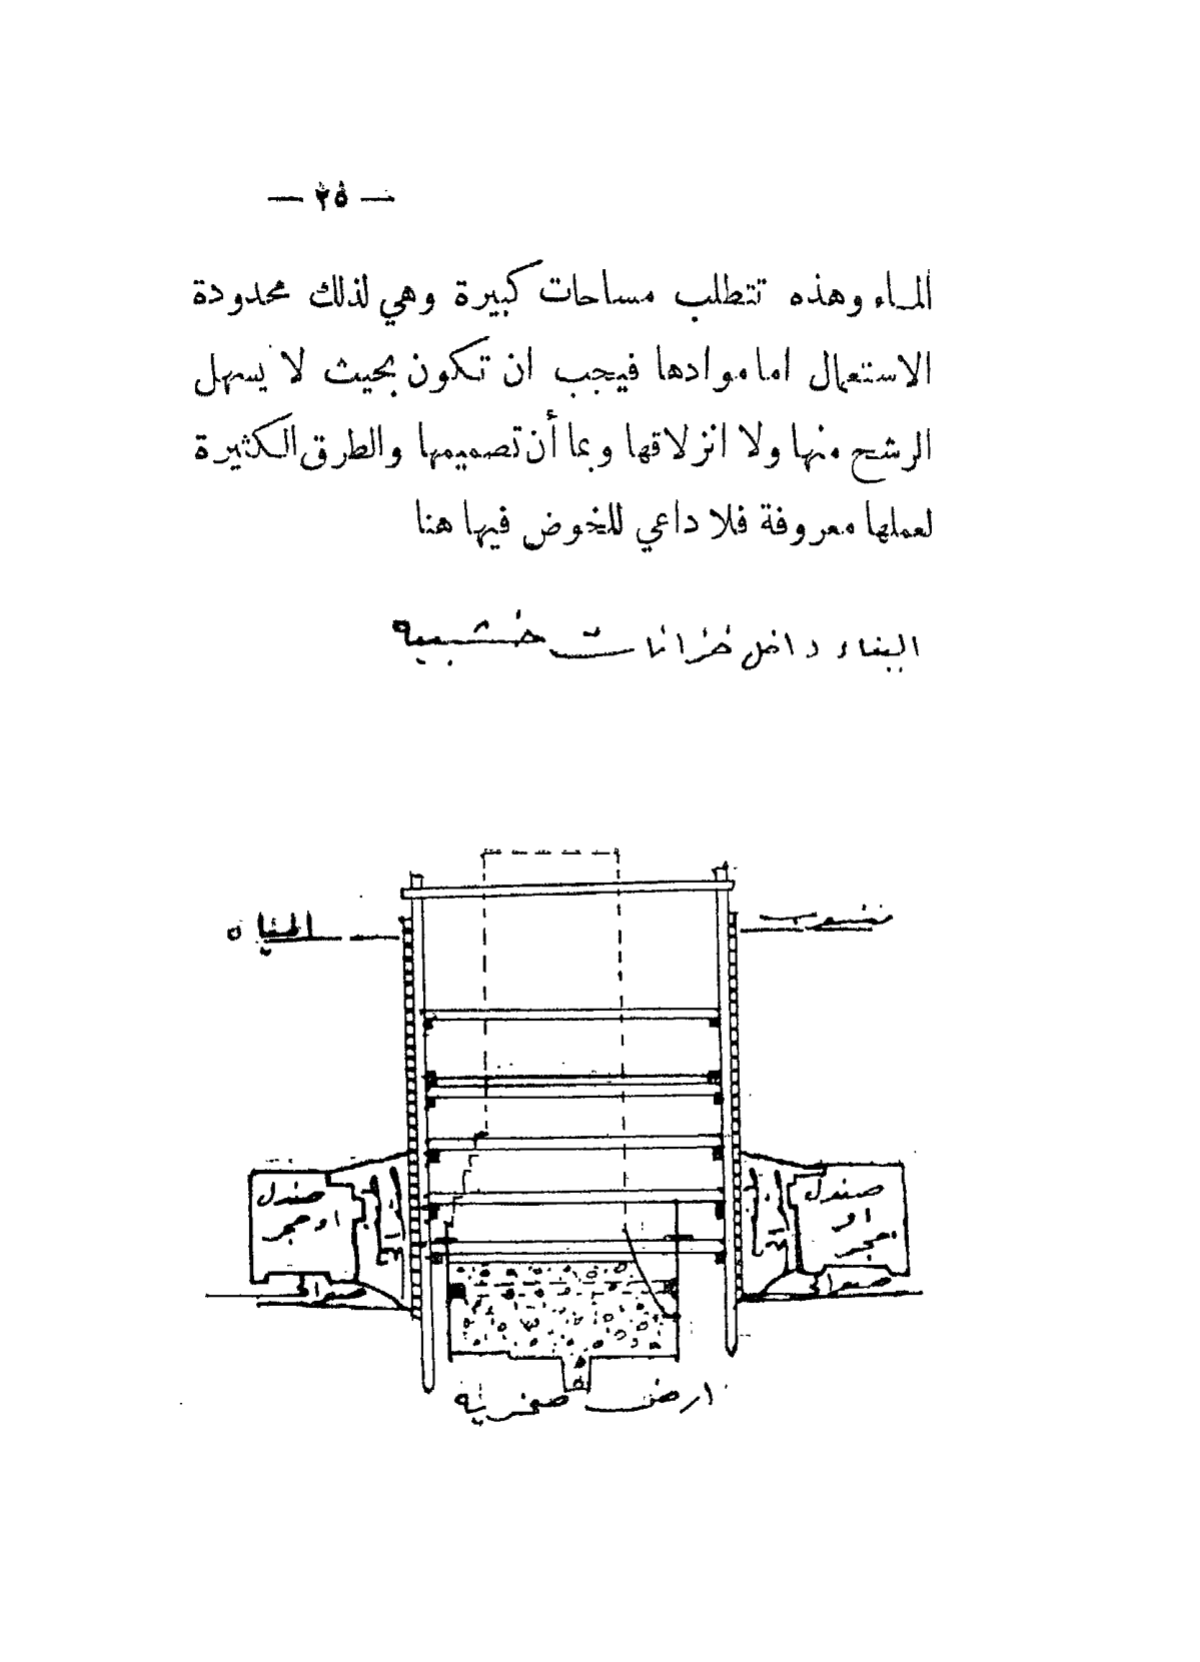 — ٢٥ —
الماء وهذه تتطلب مساحات كبيرة وهي لذلك محدودة
الاستعمال اما موادها فيجب ان تكون بحيث لا يسهل
الرشح منها ولا انزلاقها وبما أن تصميمها والطرق الكثيرة
لعملها معروفة فلا داعي للخوض فيها هنا
البناء داخل خزانات خشبيه
منسوب المياه
صندل
او
حجر
صندل
او حجر
ارض صخريه